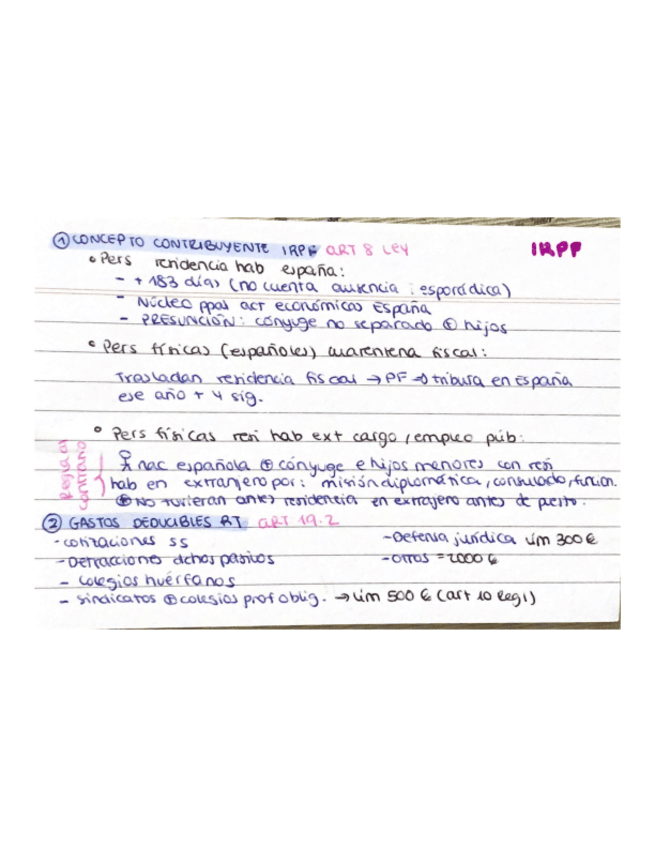 ① CONCEPTO CONTRIBUYENTE IRPF ART 8 LEY
IRPF
• Pers residencia hab españa:
- + 183 días (no cuenta ausencia esporádica)
- Núcleo ppal act económicas España
- PRESUNCIÓN: cónyuge no separado ⊕ hijos
• Pers físicas (españoles) cuarentena fiscal:
Trasladan residencia fiscal → PF → tributa en España
ese año + 4 sig.
• Pers físicas resi hab ext cargo/empleo púb:
Regla al contrario
nac española ⊕ cónyuge e hijos menores con resi
hab en extranjero por: misión diplomática, consulado, funcion.
⊕ No tuvieran antes residencia en extrajero antes de puesto.
② GASTOS DEDUCIBLES RT ART 19.2
- cotizaciones SS
- Detracciones dchos pasivos
- colegios huérfanos
- sindicatos ⊕ colegios prof oblig. → lím 500 € (art 10 Regl)
- Defensa jurídica lím 300 €
- Otros = 2000 €